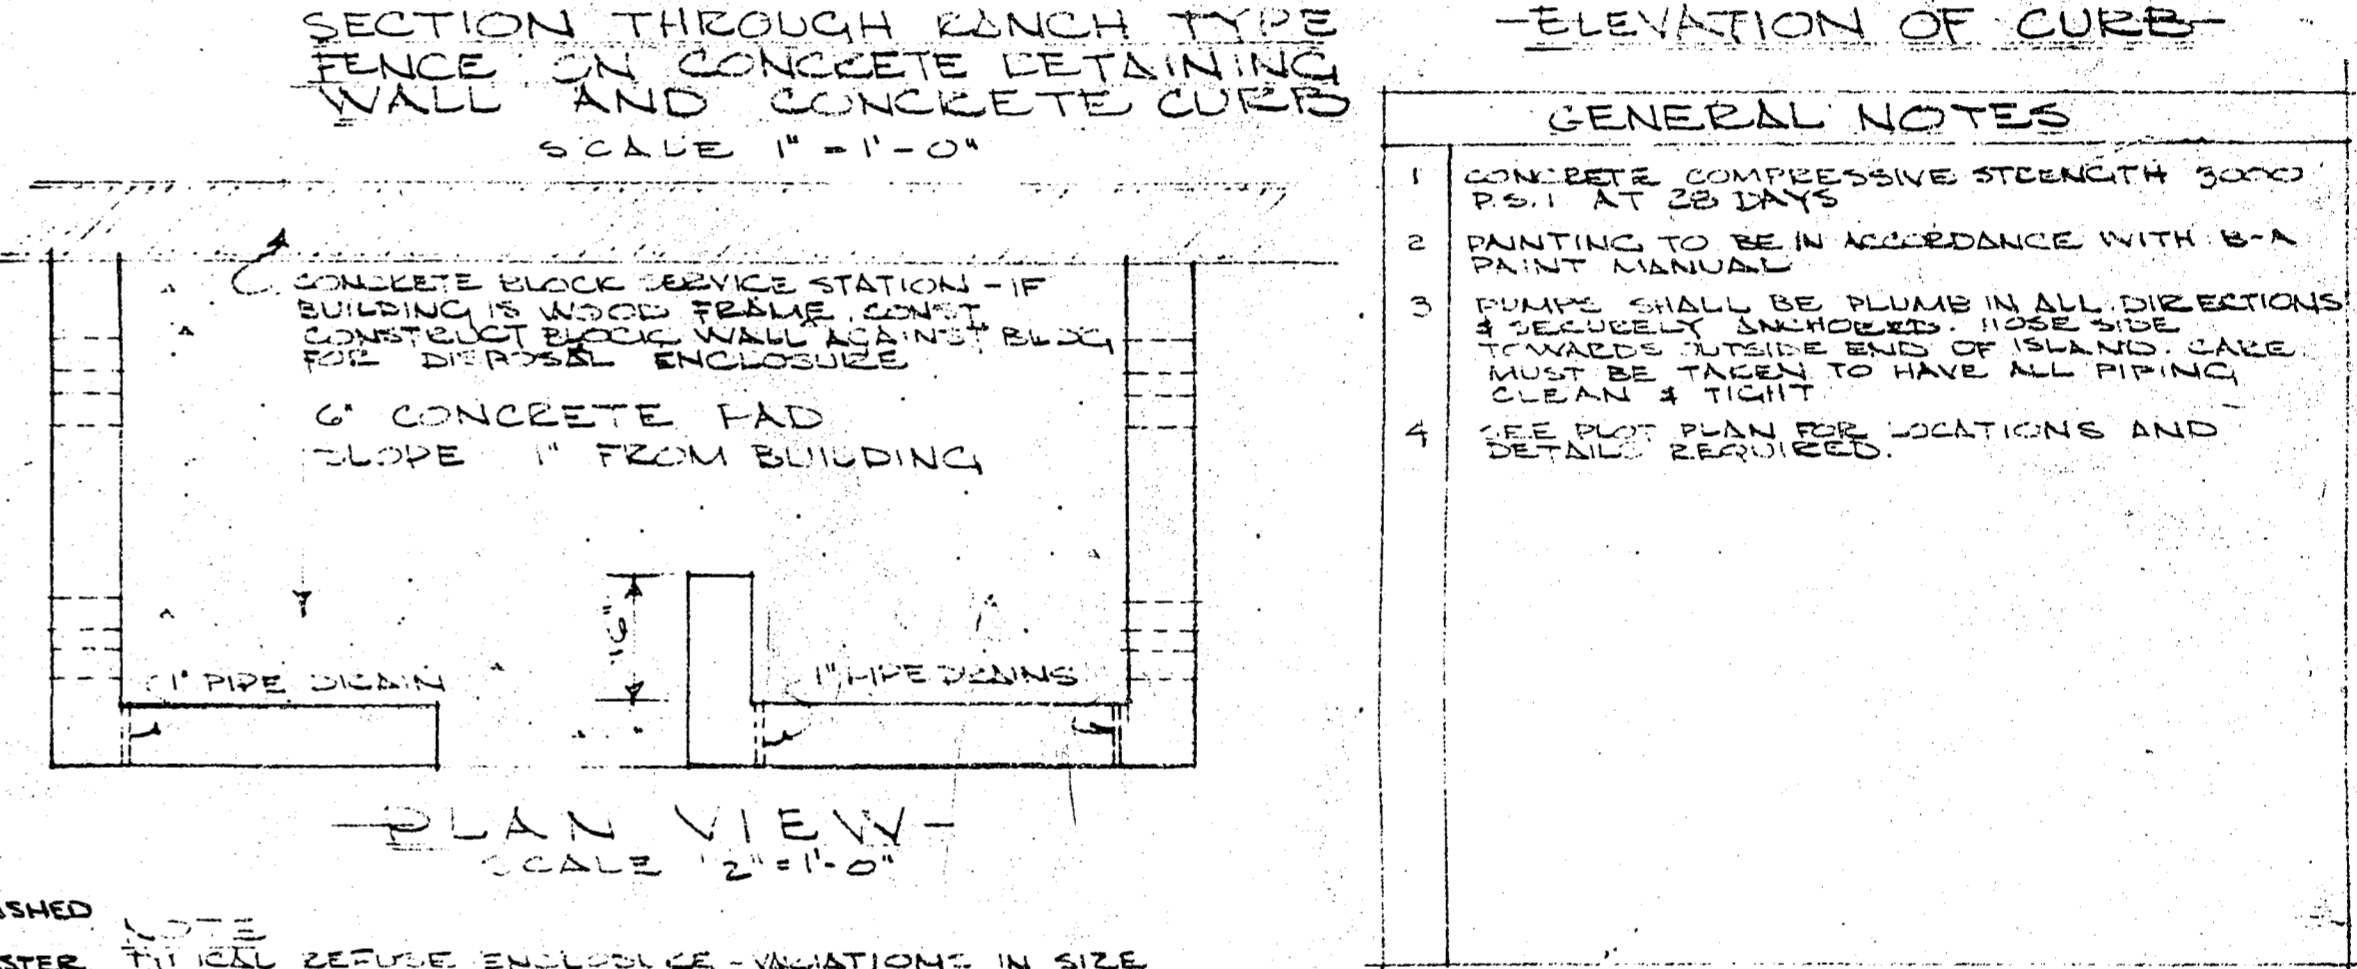 SECTION THROUGH RANCH TYPE
FENCE ON CONCRETE RETAINING
WALL AND CONCRETE CURB
SCALE 1" = 1'-0"
CONCRETE BLOCK SERVICE STATION - IF
BUILDING IS WOOD FRAME, CONST
CONSTRUCT BLOCK WALL AGAINST BLDG
FOR DISPOSAL ENCLOSURE
6" CONCRETE PAD
SLOPE 1" FROM BUILDING
1" PIPE DRAIN
1" PIPE DRAINS
-PLAN VIEW-
SCALE 1/2" = 1'-0"
NOTE
TYPICAL REFUSE ENCLOSURE - VARIATIONS IN SIZE
-ELEVATION OF CURB-
GENERAL NOTES
1 CONCRETE COMPRESSIVE STRENGTH 3000
P.S.I AT 28 DAYS
2 PAINTING TO BE IN ACCORDANCE WITH B-A
PAINT MANUAL
3 PUMPS SHALL BE PLUMB IN ALL DIRECTIONS
& SECURELY ANCHORED. HOSE SIDE
TOWARDS OUTSIDE END OF ISLAND. CARE
MUST BE TAKEN TO HAVE ALL PIPING
CLEAN & TIGHT
4 SEE PLOT PLAN FOR LOCATIONS AND
DETAILS REQUIRED.